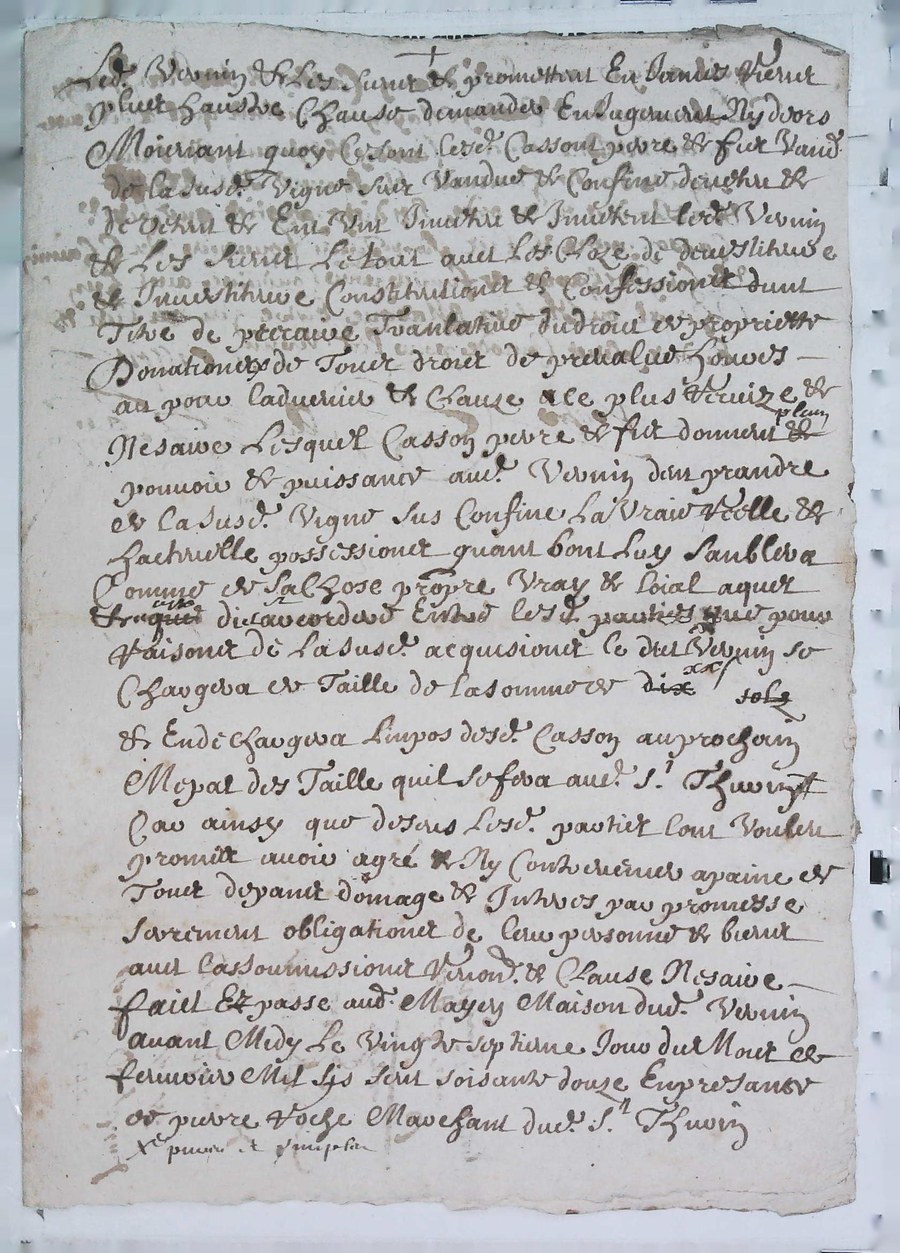 Led. Vernin & Les sienes & promettent En Jamais Rienes
plus hausdre Chause demander En Jugement Ny deors
Moienant quoy Ce sont lesd. Casson perre & fier Vand.
de la susd. Vigne sus Vandue & Confine devetiu &
devetent & Ent Vint Jnvetiu & Jnvetent led. Vernin
& Les sienes Le tout avet Les Cloze de devestiture
& Jnvestiture Constitutiones & Confessiones dunt
Titre de precaire Translative du droict de propriette
Donationes de Toues droict de prevalue hores
au pour ladvenir & Clauze a ce plus Requize &
Nesaire Lesquel Casson perre & fier donnent plain &
pouvoir & puissance aud. Vernin den prandre
de la susd. Vigne sus Confine La Vraie Relle &
Lactuelle possessiones quant bont Luy Sanblera
Comme de sa Chose propre Vray & loial aquet
este dict acordere Entre lesd. parties que pour
Raisones de la susd. acquisiones le dict Vernin se
Chargera de Taille de la somme de dix xx s
sols
& En dechargera Linpos desd. Casson au prochain
Mepat des Taille quil se fera aud. St. Thurin
Car ainsy que desus Lesd. parties lont Voulen
promis avoir agré & Ny Contrevenir a paine de
Toues depanes domage & Jntres par promesse
serrement obligationes de leur personne & bienes
avet lassoumissiones Renond. & Clause Nesaire
faict Et passe aud. Mayen Maison dud. Vernin
avant Midy Le Vingte septieme Jour du Moues de
fevrier Mil sis sent soisante douze En presance
de pierre Roche Marchant dud. St. Thurin